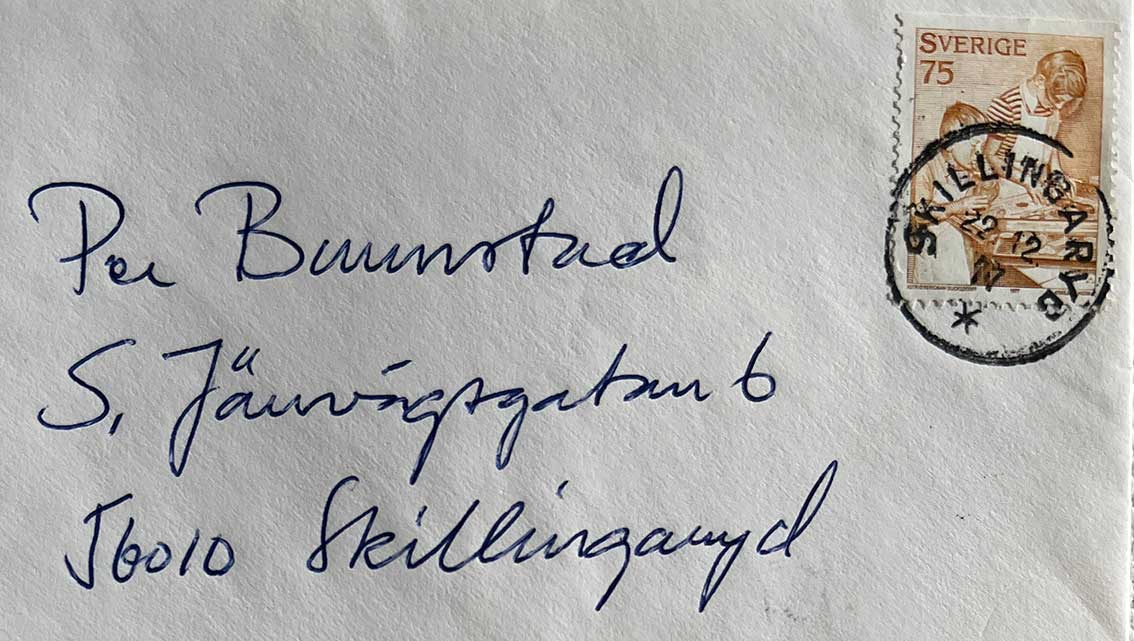 SVERIGE
75
SKILLINGARYD
22 12
77
*
Per
S, Järnvägsgatan 6
56010 Skillingaryd